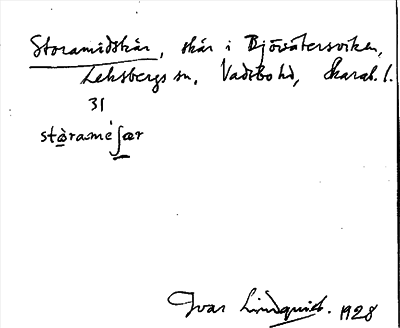 Storamidskär, skär i Björsätersviken,
Leksbergs sn, Vadsbo hd, Skarab. l.
31
stòrameʃær
Ivar Lindquist. 1928